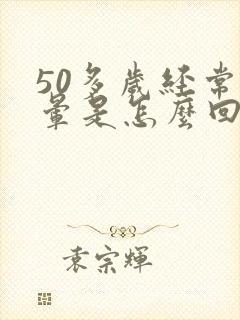 50多歲經常
暈是怎麼回
袁宗輝